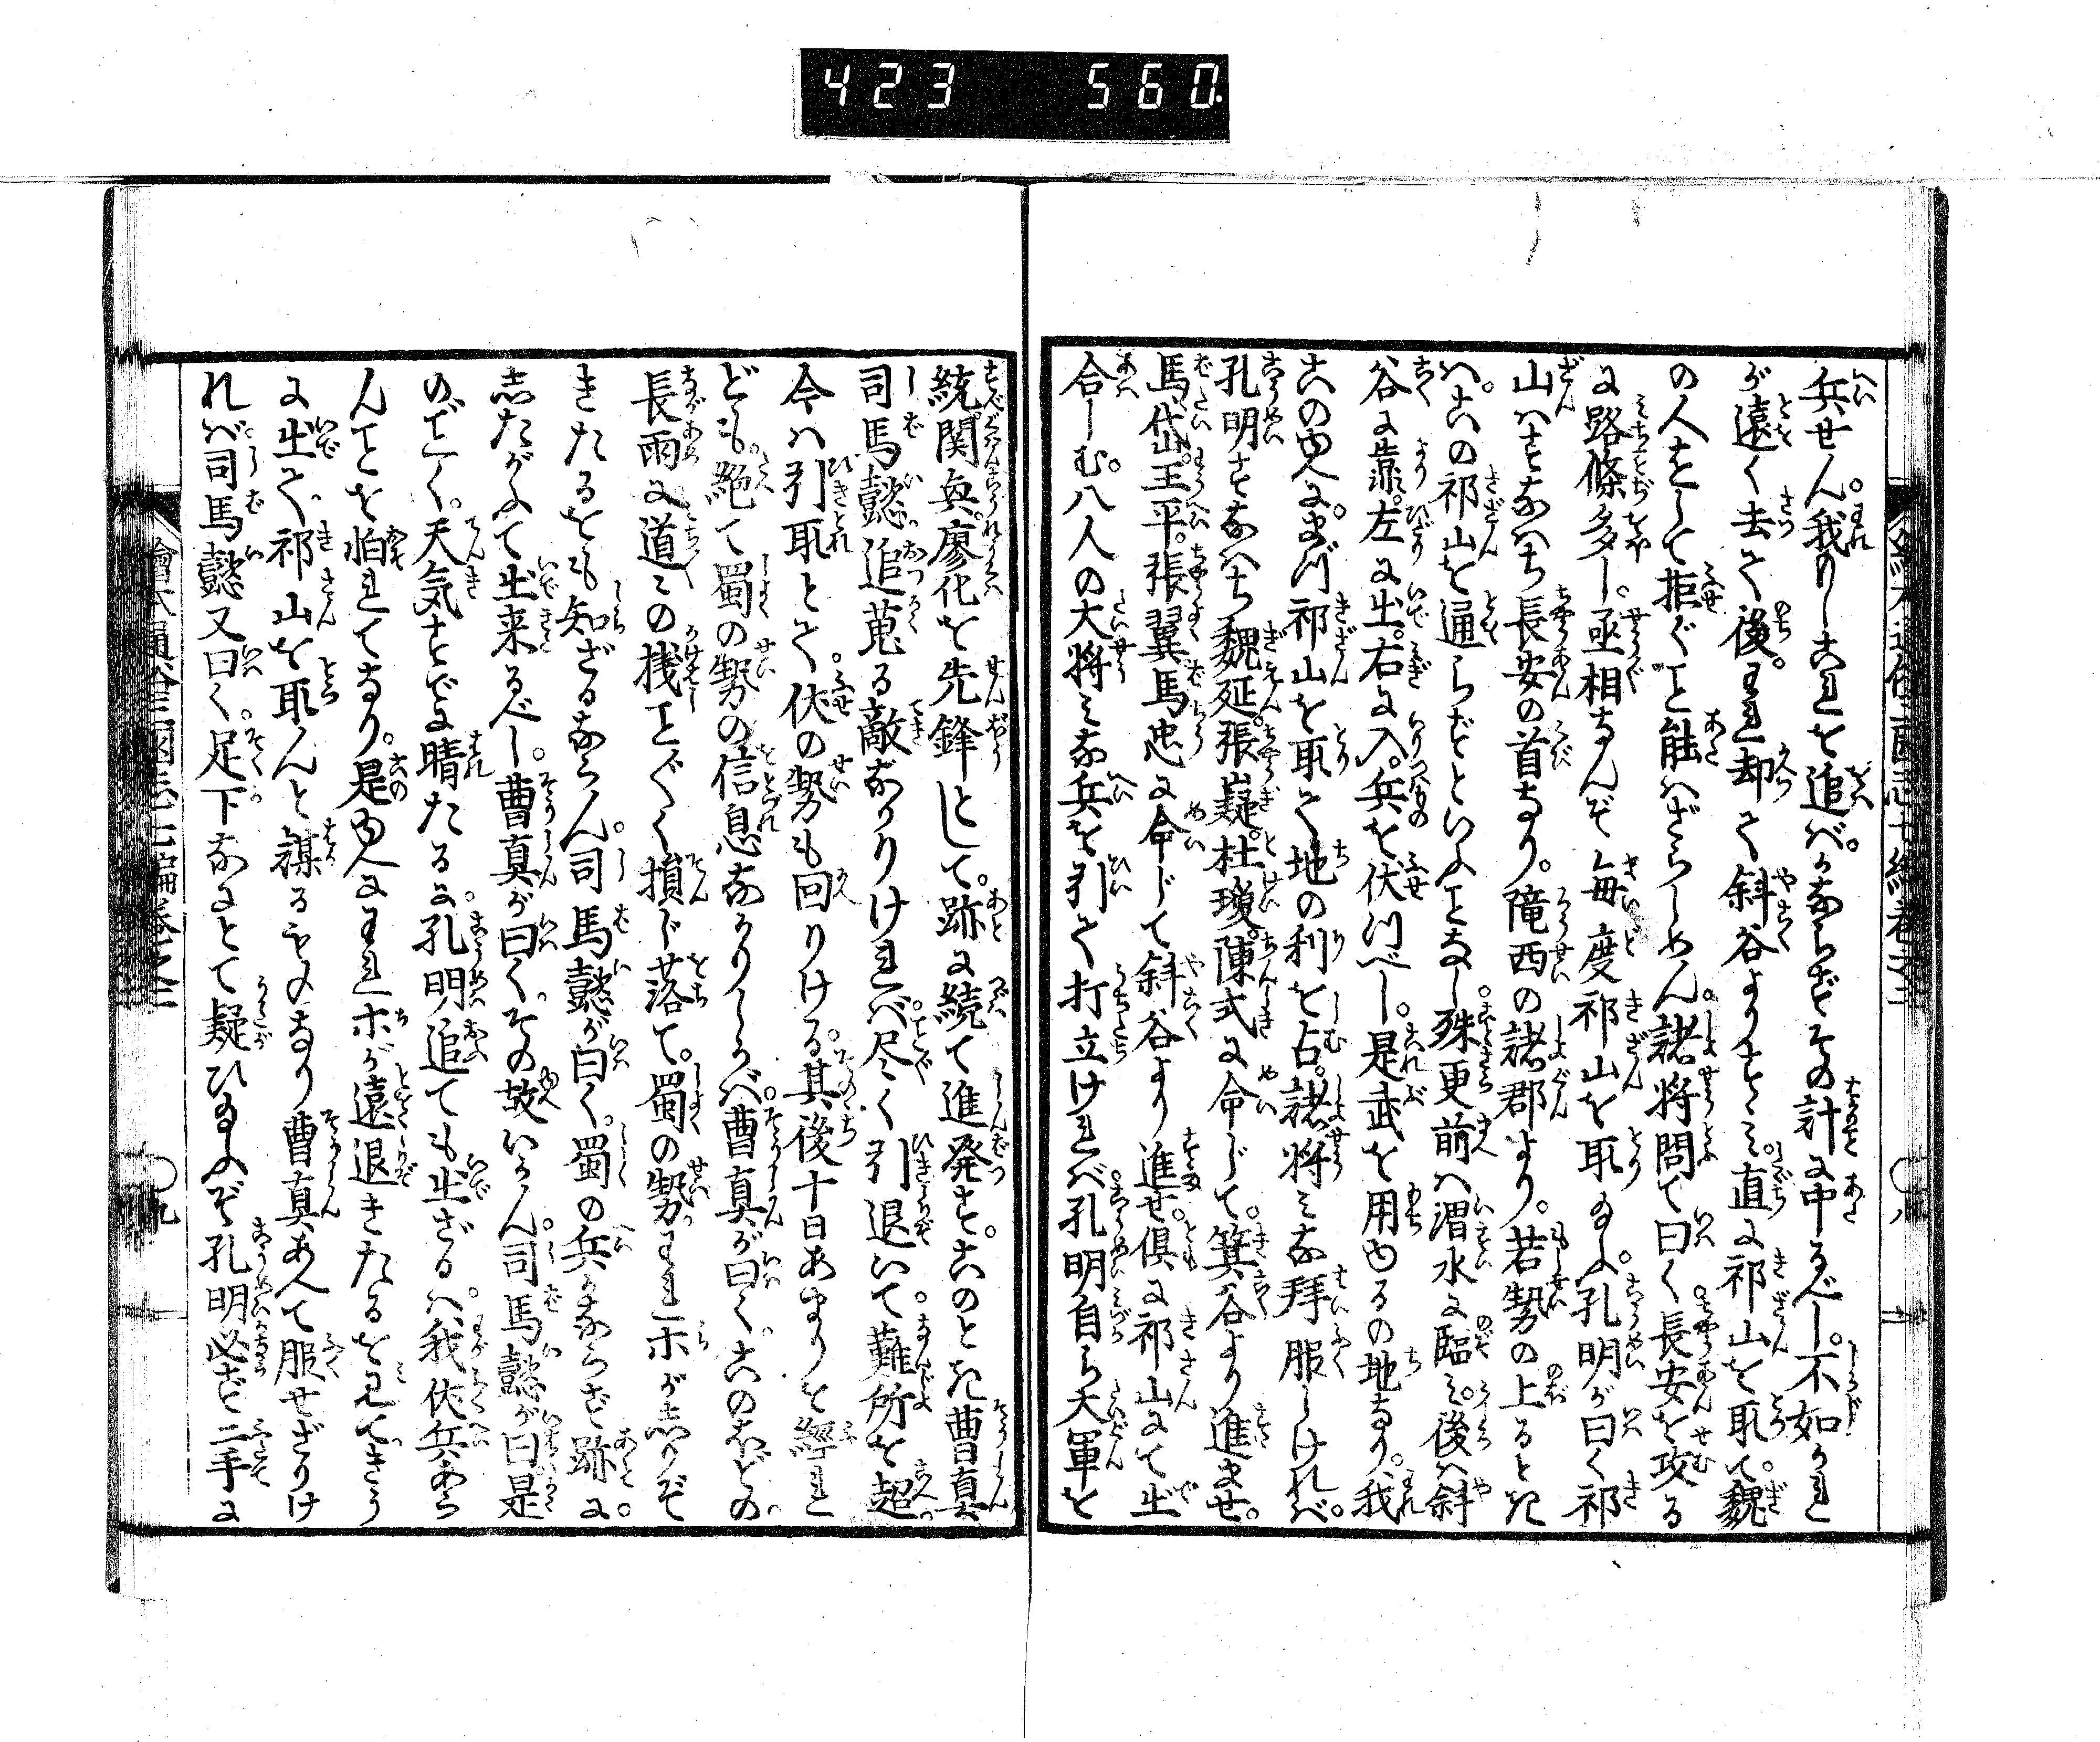 423 560.
兵せん。我もしこれを追ばかならずその計に中るべし。不如かれ
が遠く去て後。われ却て斜谷よりすゝみ。直に祁山を取て。魏
の人をして拒ぐこと能はざらしめん。諸将問て曰く長安を攻る
に路條多し。丞相なんぞ毎度祁山を取玉ふ。孔明が曰く祁
山はすなはち長安の首なり。隴西の諸郡より。若勢の上るとき
は。この祁山を通らずといふことなし。殊更前は渭水に臨み。後は斜
谷に靠。左に出。右に入。兵を伏つべし。是武を用ゆるの地なり。我
このゆへにまづ祁山を取て地の利を占。諸将みな拝服しければ。
孔明すなはち魏延。張嶷。杜瓊。陳式に命じて。箕谷より進ませ。
馬岱。王平。張翼。馬忠に命じて斜谷より進せ。倶に祁山にて出
合しむ。八人の大将みな兵を引て打立ければ。孔明自ら大軍を
統。関興。廖化を先鋒として。跡に続て進発す。このとき曹真
司馬懿追蒐る敵なかりければ尽く引退いて。難所を超。
今は引取とて。伏の勢も回りける。其後十日あまりを經れ
ども。絶て蜀の勢の信息なかりしかば。曹真が曰く。このほどの。
長雨に道々の棧ことごとく損じ落て。蜀の勢。われ〳〵が志りぞ
きたるをも知ざるならん。司馬懿が曰く。蜀の兵かならず跡に。
志たがふて出来るべし。曹真が曰く。その故いかん。司馬懿が曰是
のごとく。天気すでに晴たるに。孔明追ても出ざるは。我伏兵あら
んことを怕れてなり。是ゆへにわれ〳〵が遠退きたるを見てきう
に出て。祁山を取んと謀るものなり曹真あへて服せざりけ
れば司馬懿又曰く。足下なにとて疑ひ玉ふぞ孔明必ず二手に